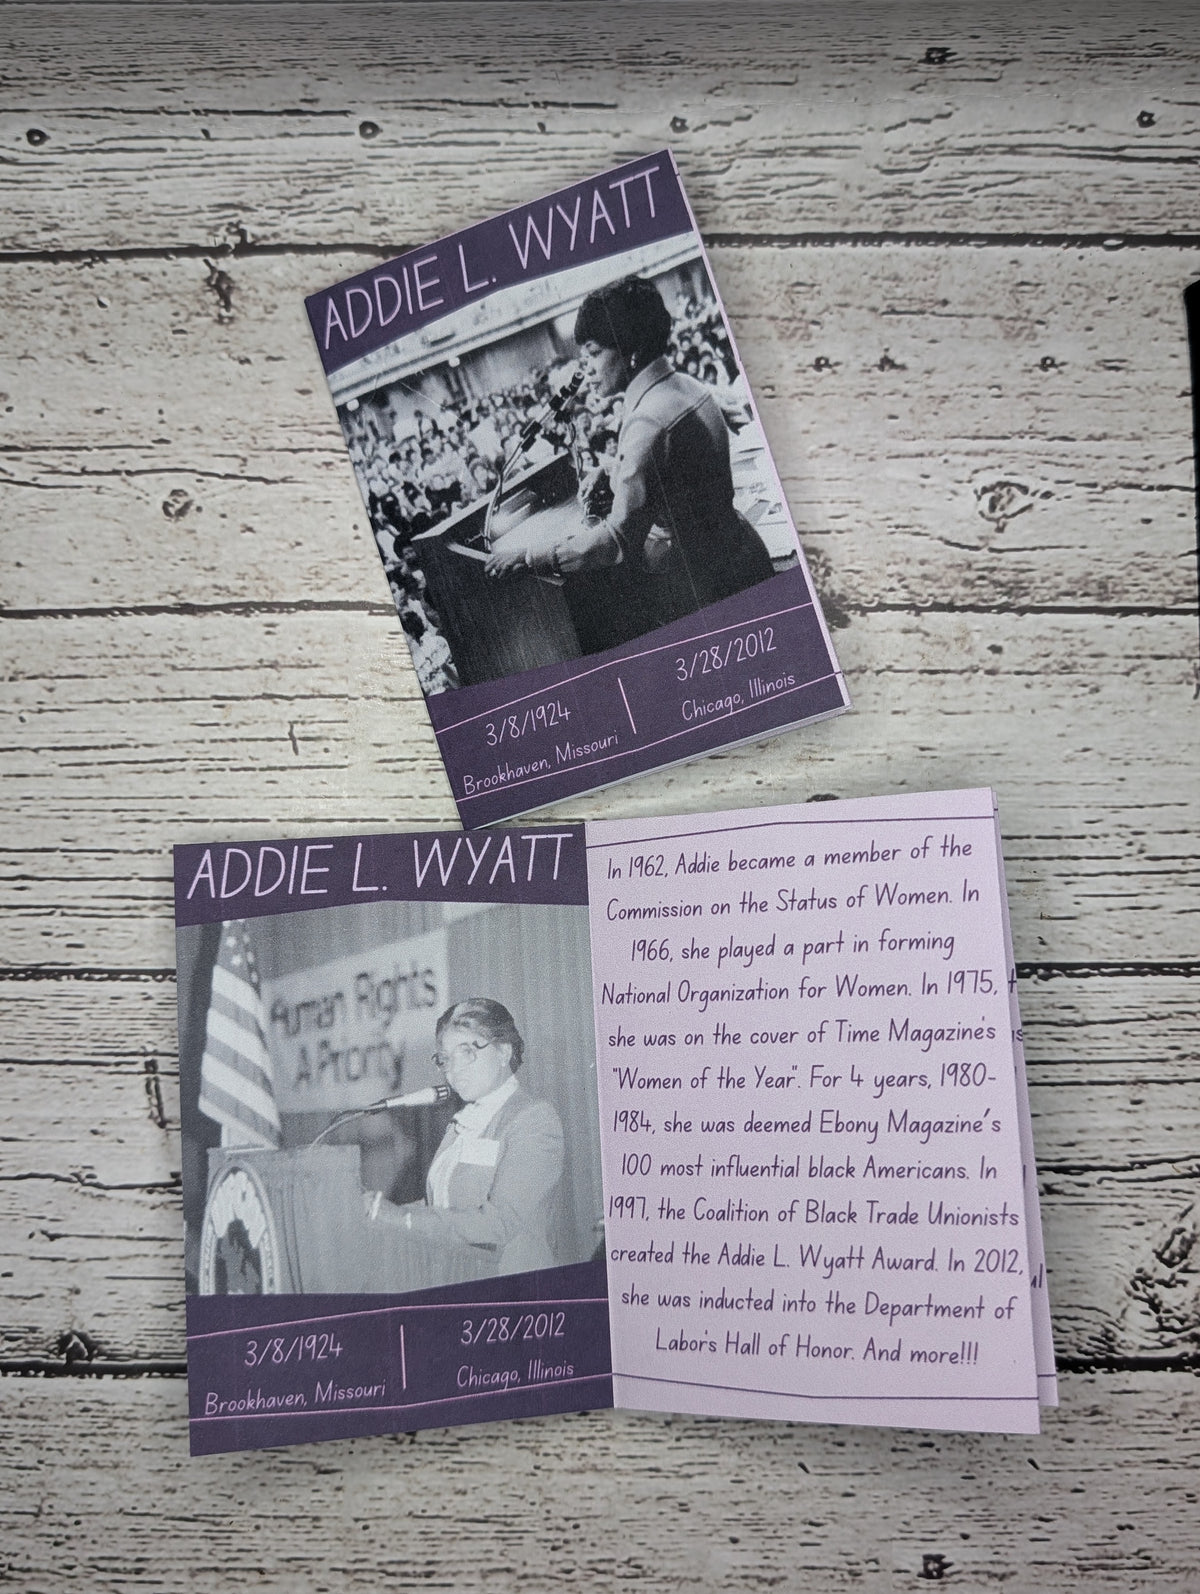 ADDIE L. WYATT
3/8/1924
Brookhaven, Missouri
3/28/2012
Chicago, Illinois
ADDIE L. WYATT
Human Rights
A Priority
3/8/1924
Brookhaven, Missouri
3/28/2012
Chicago, Illinois
In 1962, Addie became a member of the
Commission on the Status of Women. In
1966, she played a part in forming
National Organization for Women. In 1975,
she was on the cover of Time Magazine's
"Women of the Year". For 4 years, 1980-
1984, she was deemed Ebony Magazine's
100 most influential black Americans. In
1997, the Coalition of Black Trade Unionists
created the Addie L. Wyatt Award. In 2012,
she was inducted into the Department of
Labor's Hall of Honor. And more!!!